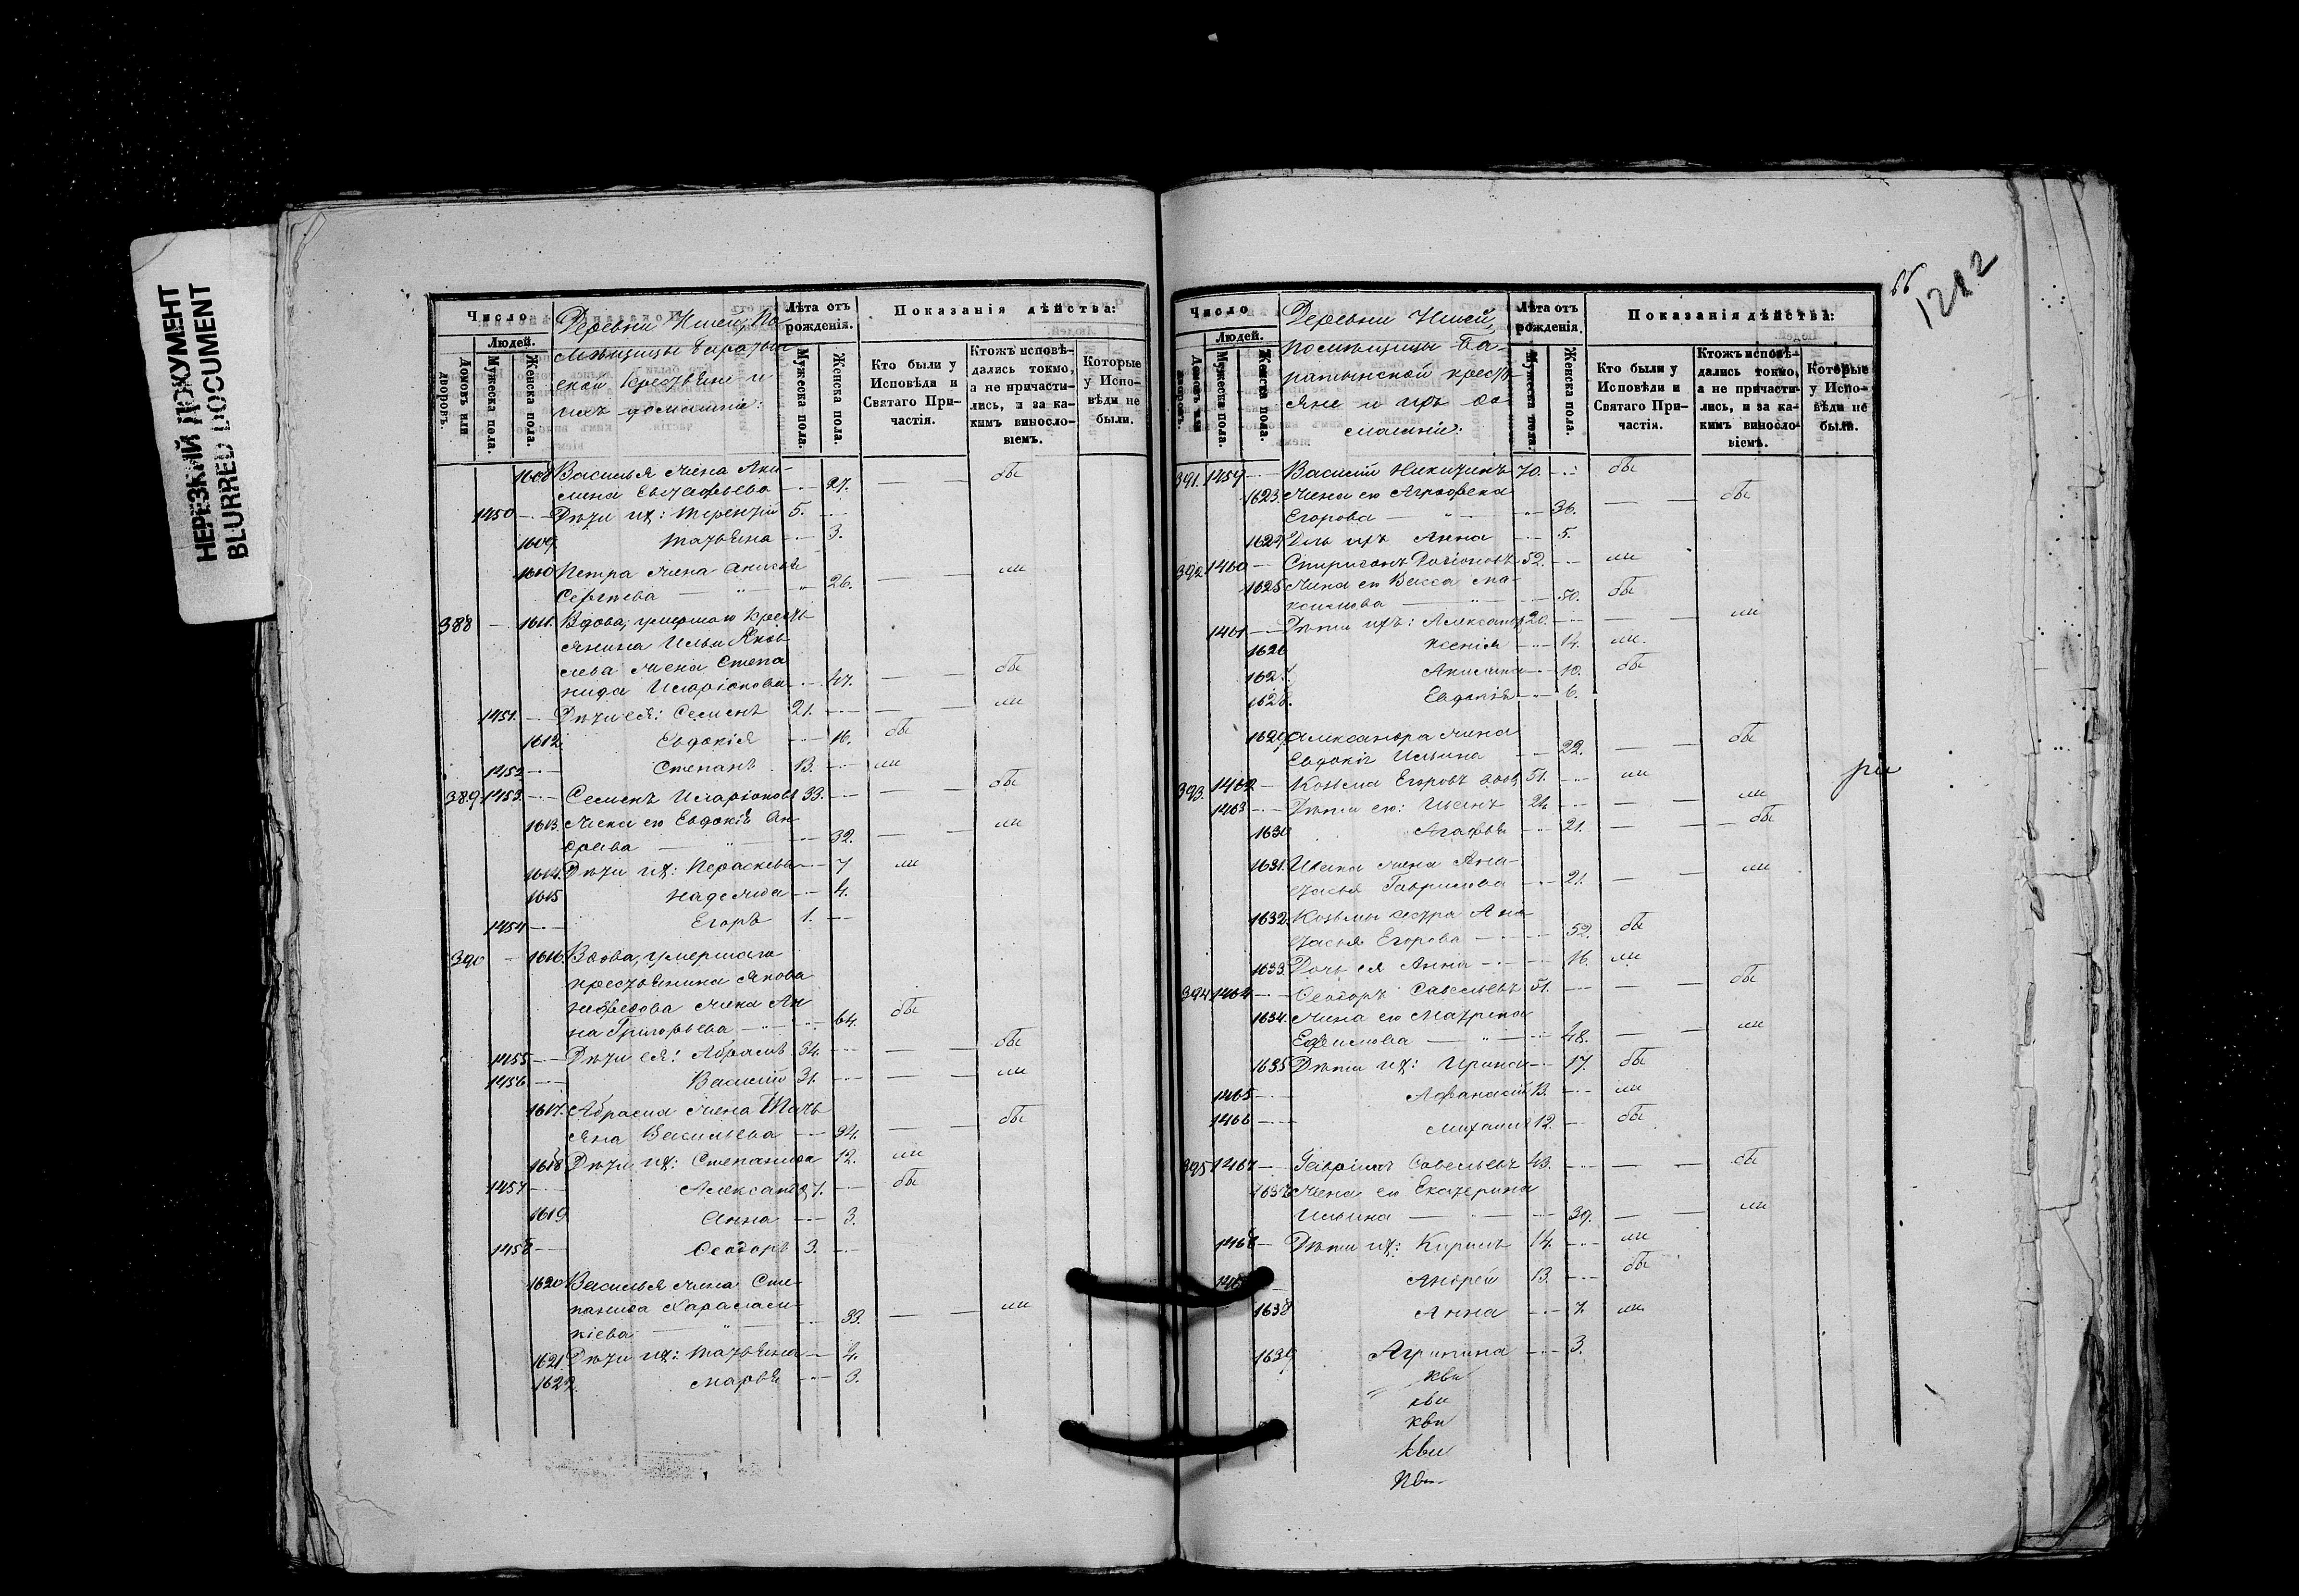 НЕРЕЗКИЙ ДОКУМЕНТ
BLURRED DOCUMENT
Число
Людей.
Домовъ или дворовъ.
Мужеска пола.
Женска пола.
Деревни
крестьяне и
ихъ домашніе:
Лѣта отъ рожденія.
Мужеска пола.
Женска пола.
Показанія дѣйства:
Кто были у Исповѣди и Святаго Причастія.
Ктожъ исповѣдались токмо, а не причастились, и за какимъ винословіемъ.
Которые у Исповѣди не были.
1608 Василья жена Аки-
лина Евстафьева 27. бы
1450 Дѣти их: Терентій 5.
1609 Татьяна 3.
1610 Петра жена Анисья
Сергеева 26. ли
388 1611. Вдова, умершаго крестья-
янина Ильи Яков-
лева жена Степа
нида Иларіонова 47. бы
1451. Дѣти ея: Семенъ 21. ли
1612 Евдокія 16. бы
1452 Степанъ 13. ли
389 1453. Семенъ Иларіоновъ 33. бы
1613. Жена ею Евдокія Ан
дреева 32. ли
1614. Дѣти их: Параскева 7 ли
1615 Надежда 4.
1454 Егоръ 1.
390 1616. Вдова, умершаго
крестьянина Якова
жена Ан
на Григорьева 64. бы
1455 Дѣти ея: Абрамъ 34. бы
1456 Василій 31. ли
1617. Абрама жена Тать
яна Васильева 34. бы
1618 Дѣти их: Степанида 12. ли
1457 Александр 7. бы
1619 Анна 3.
1458 Ѳеодоръ 3.
1620 Василья жена Сте-
панида Харалам-
піева 33. ли
1621. Дѣти их: Татьяна 4.
1622. Марья 3.
1212
Число
Людей.
Домовъ или дворовъ.
Мужеска пола.
Женска пола.
Деревни
помѣщицы Ба-
кресть
яне и ихъ до
машніе:
Лѣта отъ рожденія.
Мужеска пола.
Женска пола.
Показанія дѣйства:
Кто были у Исповѣди и Святаго Причастія.
Ктожъ исповѣдались токмо, а не причастились, и за какимъ винословіемъ.
Которые у Исповѣди не были.
391. 1459 Василій Никитинъ 70. бы
1623. Жена ею Аграфена
Егорова 36. бы
1624 Дочь ихъ Анна 5.
392 1460 Спиридонъ Родіоновъ 52. ли
1625 Жена ею Васса Ма-
ксимова 50. бы
1461 Дѣти ихъ: Александръ 20. ли
1626 Ксенія 14. ли
1627. Акилина 10. бы
1628. Евдокія 6.
1629 Александра жена
Евдокія Ильина 22. бы
393. 1462 Козьма Егоровъ вдов, 51. ли
1463 Дѣти ею: Иванъ 24. ли
1630 Агафья 21. бы
1631. Ивана жена Ана-
стасья Гаврилова 21. ли
1632. Козьмы сестра Ана
стасья Егорова 52. бы
1633. Дочь ея Анна 16. ли
394 1464 Ѳеодоръ Савельевъ 51. бы
1634. Жена ею Матрена
Ефимова 48. ли
1635 Дѣти их: Ирина 17. бы
1465 Афанасій 13. ли
1466 Михаилъ 12. бы
395 1467 Гавріилъ Савельевъ 43. бы
Жена ею Екатерина
Ильина 39. ли
1468 Дѣти их: Кирилъ 14. ли
Андрей 13. бы
1638 Анна 7. ли
1639 Агрипина 3.